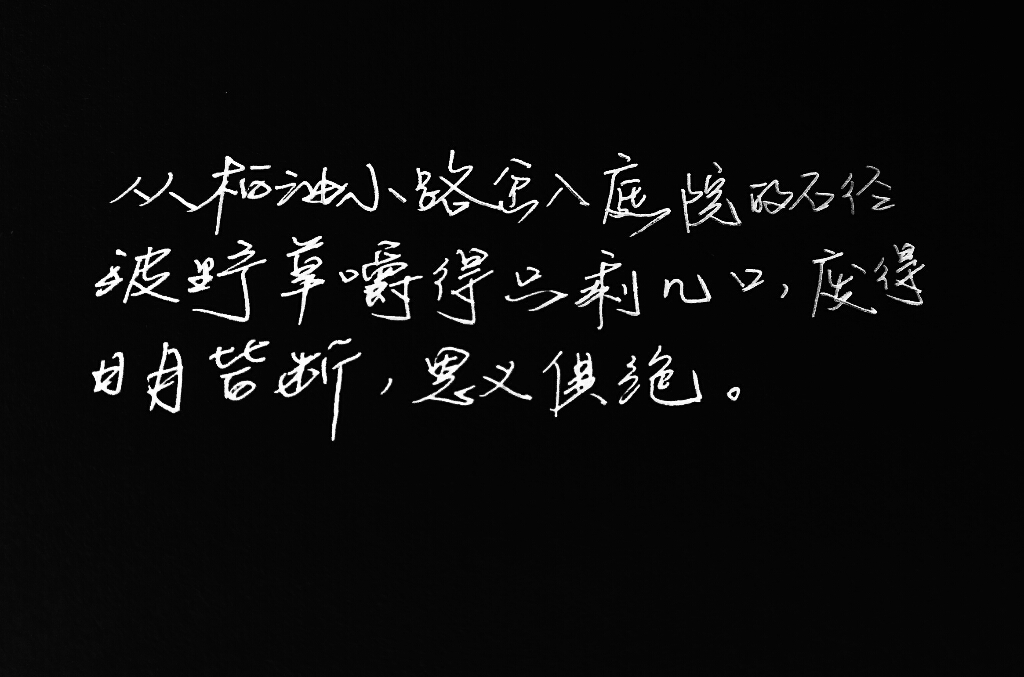 从柏油小路岔入庭院的石径
被野草嚼得只剩几口,废得
明月皆断,恩义俱绝。